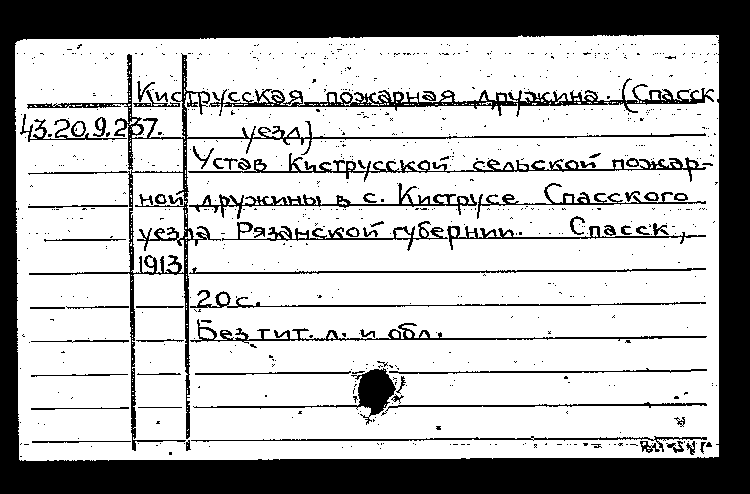 Киструсская пожарная дружина. (Спасск.
43.20.9.237. уезд)
Устав Киструсской сельской пожар-
ной дружины в с. Киструсе Спасского
уезда Рязанской губернии. Спасск,
1913.
20 с.
Без тит. л. и обл.